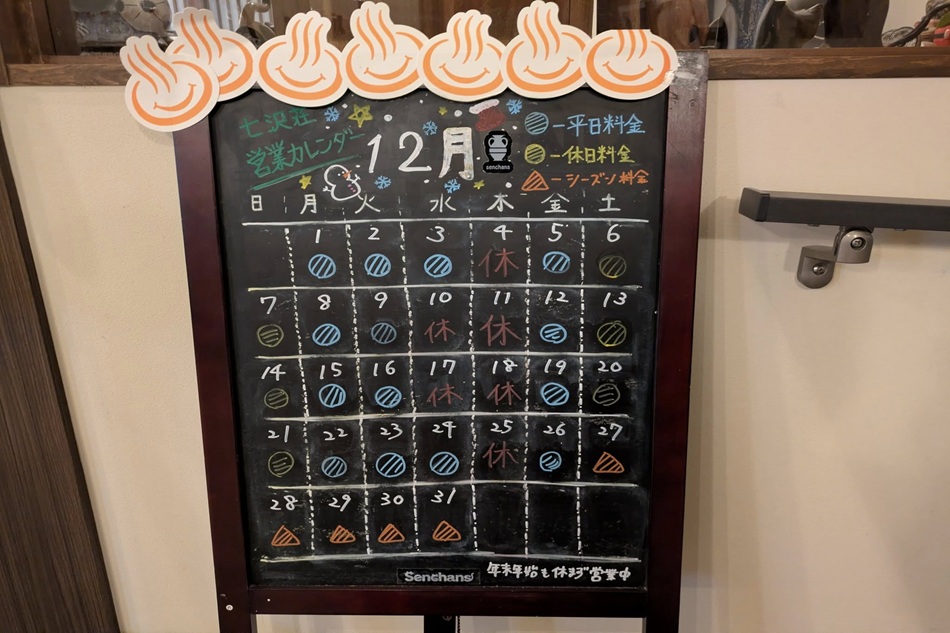 七沢荘
営業カレンダー
12月
senchans
ー平日料金
ー休日料金
ーシーズン料金
日 月 火 水 木 金 土
1 2 3 4 5 6
休
7 8 9 10 11 12 13
休 休
14 15 16 17 18 19 20
休 休
21 22 23 24 25 26 27
休
28 29 30 31
Senchans
年末年始も休まず営業中